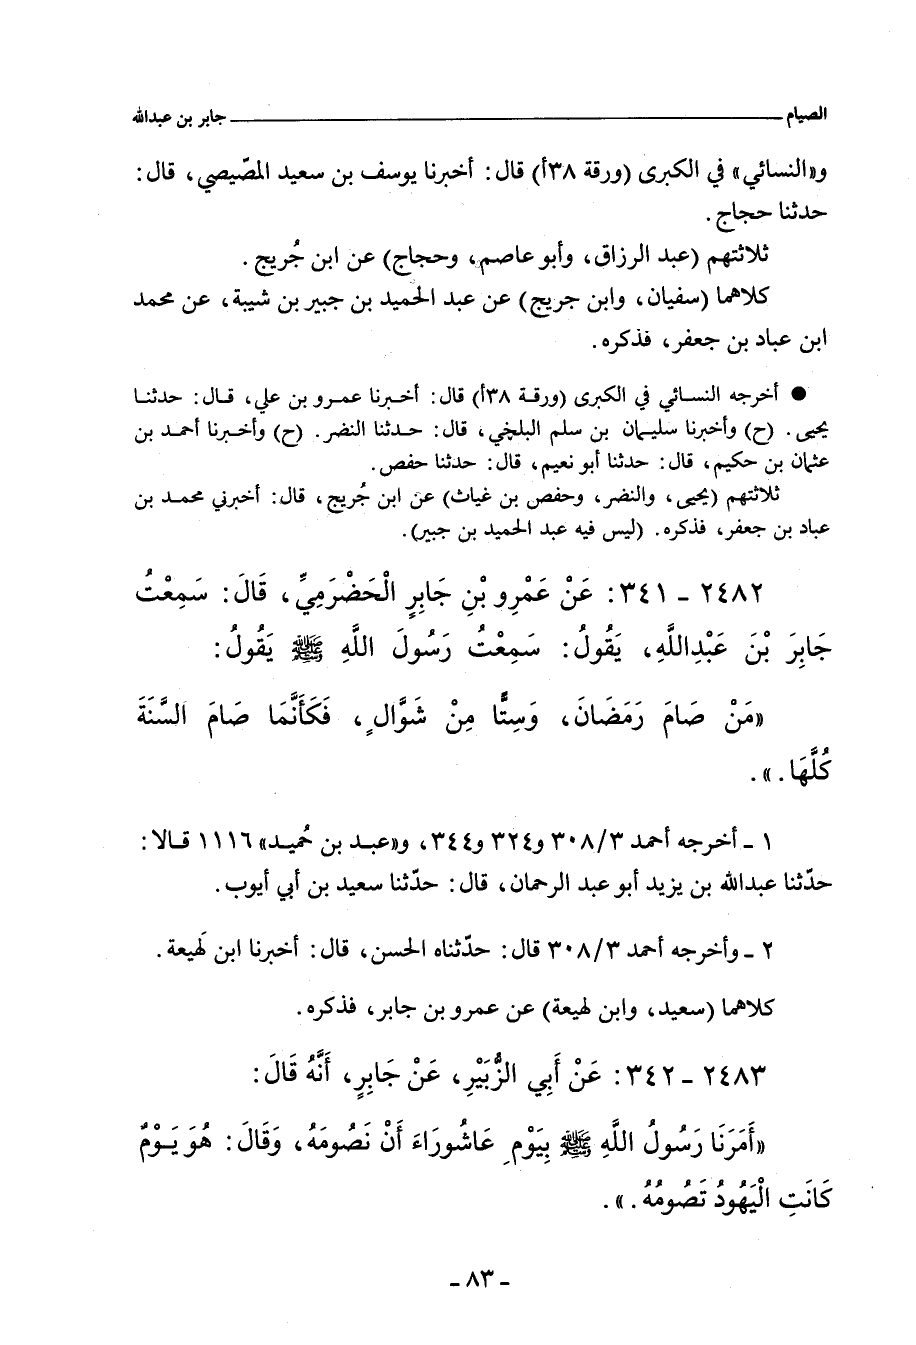 الصيام ـــــ جابر بن عبدالله
و«النسائي» في الكبرى (ورقة ٣٨أ) قال: أخبرنا يوسف بن سعيد المصّيصي، قال:
حدثنا حجاج.
ثلاثتهم (عبد الرزاق، وأبو عاصم، وحجاج) عن ابن جُريج.
كلاهما (سفيان، وابن جريج) عن عبد الحميد بن جبير بن شيبة، عن محمد
ابن عباد بن جعفر، فذكره.
● أخرجه النسائي في الكبرى (ورقة ٣٨أ) قال: أخبرنا عمرو بن علي، قال: حدثنا
يحيى. (ح) وأخبرنا سليمان بن سلم البلخي، قال: حدثنا النضر. (ح) وأخبرنا أحمد بن
عثمان بن حكيم، قال: حدثنا أبو نعيم، قال: حدثنا حفص.
ثلاثتهم (يحيى، والنضر، وحفص بن غياث) عن ابن جُريج، قال: أخبرني محمد بن
عباد بن جعفر، فذكره. (ليس فيه عبد الحميد بن جبير).
٢٤٨٢ - ٣٤١: عَنْ عَمْرِو بْنِ جَابِرٍ الْحَضْرَمِيِّ، قَالَ: سَمِعْتُ
جَابِرَ بْنَ عَبْدِاللَّهِ، يَقُولُ: سَمِعْتُ رَسُولَ اللَّهِ ﷺ يَقُولُ:
«مَنْ صَامَ رَمَضَانَ، وَسِتًّا مِنْ شَوَّالٍ، فَكَأَنَّمَا صَامَ السَّنَةَ
كُلَّهَا.».
١ - أخرجه أحمد ٣٠٨/٣ و٣٢٤ و٣٤٤، و«عبد بن حُميد» ١١١٦ قالا:
حدّثنا عبدالله بن يزيد أبو عبد الرحمان، قال: حدّثنا سعيد بن أبي أيوب.
٢ - وأخرجه أحمد ٣٠٨/٣ قال: حدّثناه الحسن، قال: أخبرنا ابن لَهيعة.
كلاهما (سعيد، وابن لهيعة) عن عمرو بن جابر، فذكره.
٢٤٨٣ - ٣٤٢: عَنْ أَبِي الزُّبَيْرِ، عَنْ جَابِرٍ، أَنَّهُ قَالَ:
«أَمَرَنَا رَسُولُ اللَّهِ ﷺ بِيَوْمِ عَاشُورَاءَ أَنْ نَصُومَهُ، وَقَالَ: هُوَ يَوْمٌ
كَانَتِ الْيَهُودُ تَصُومُهُ.».
- ٨٣ -